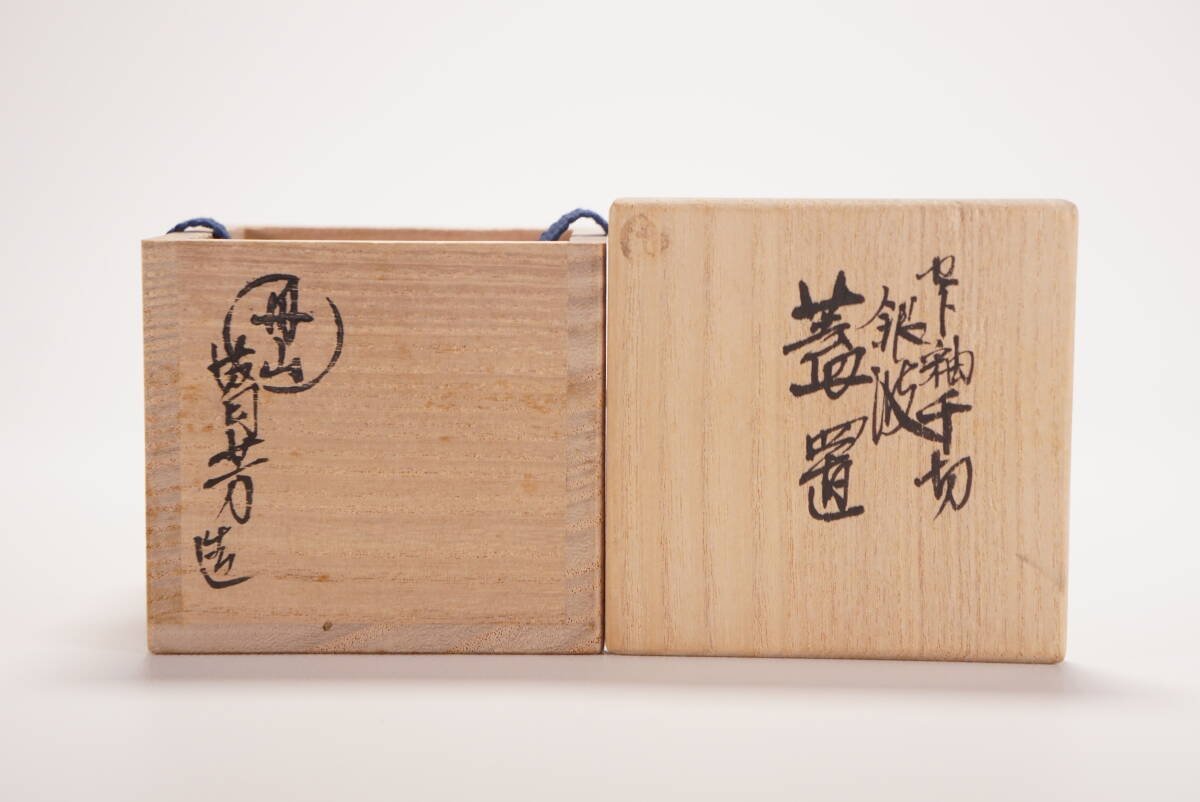 セト釉千切
銀波
蓋置
丹山
芳造